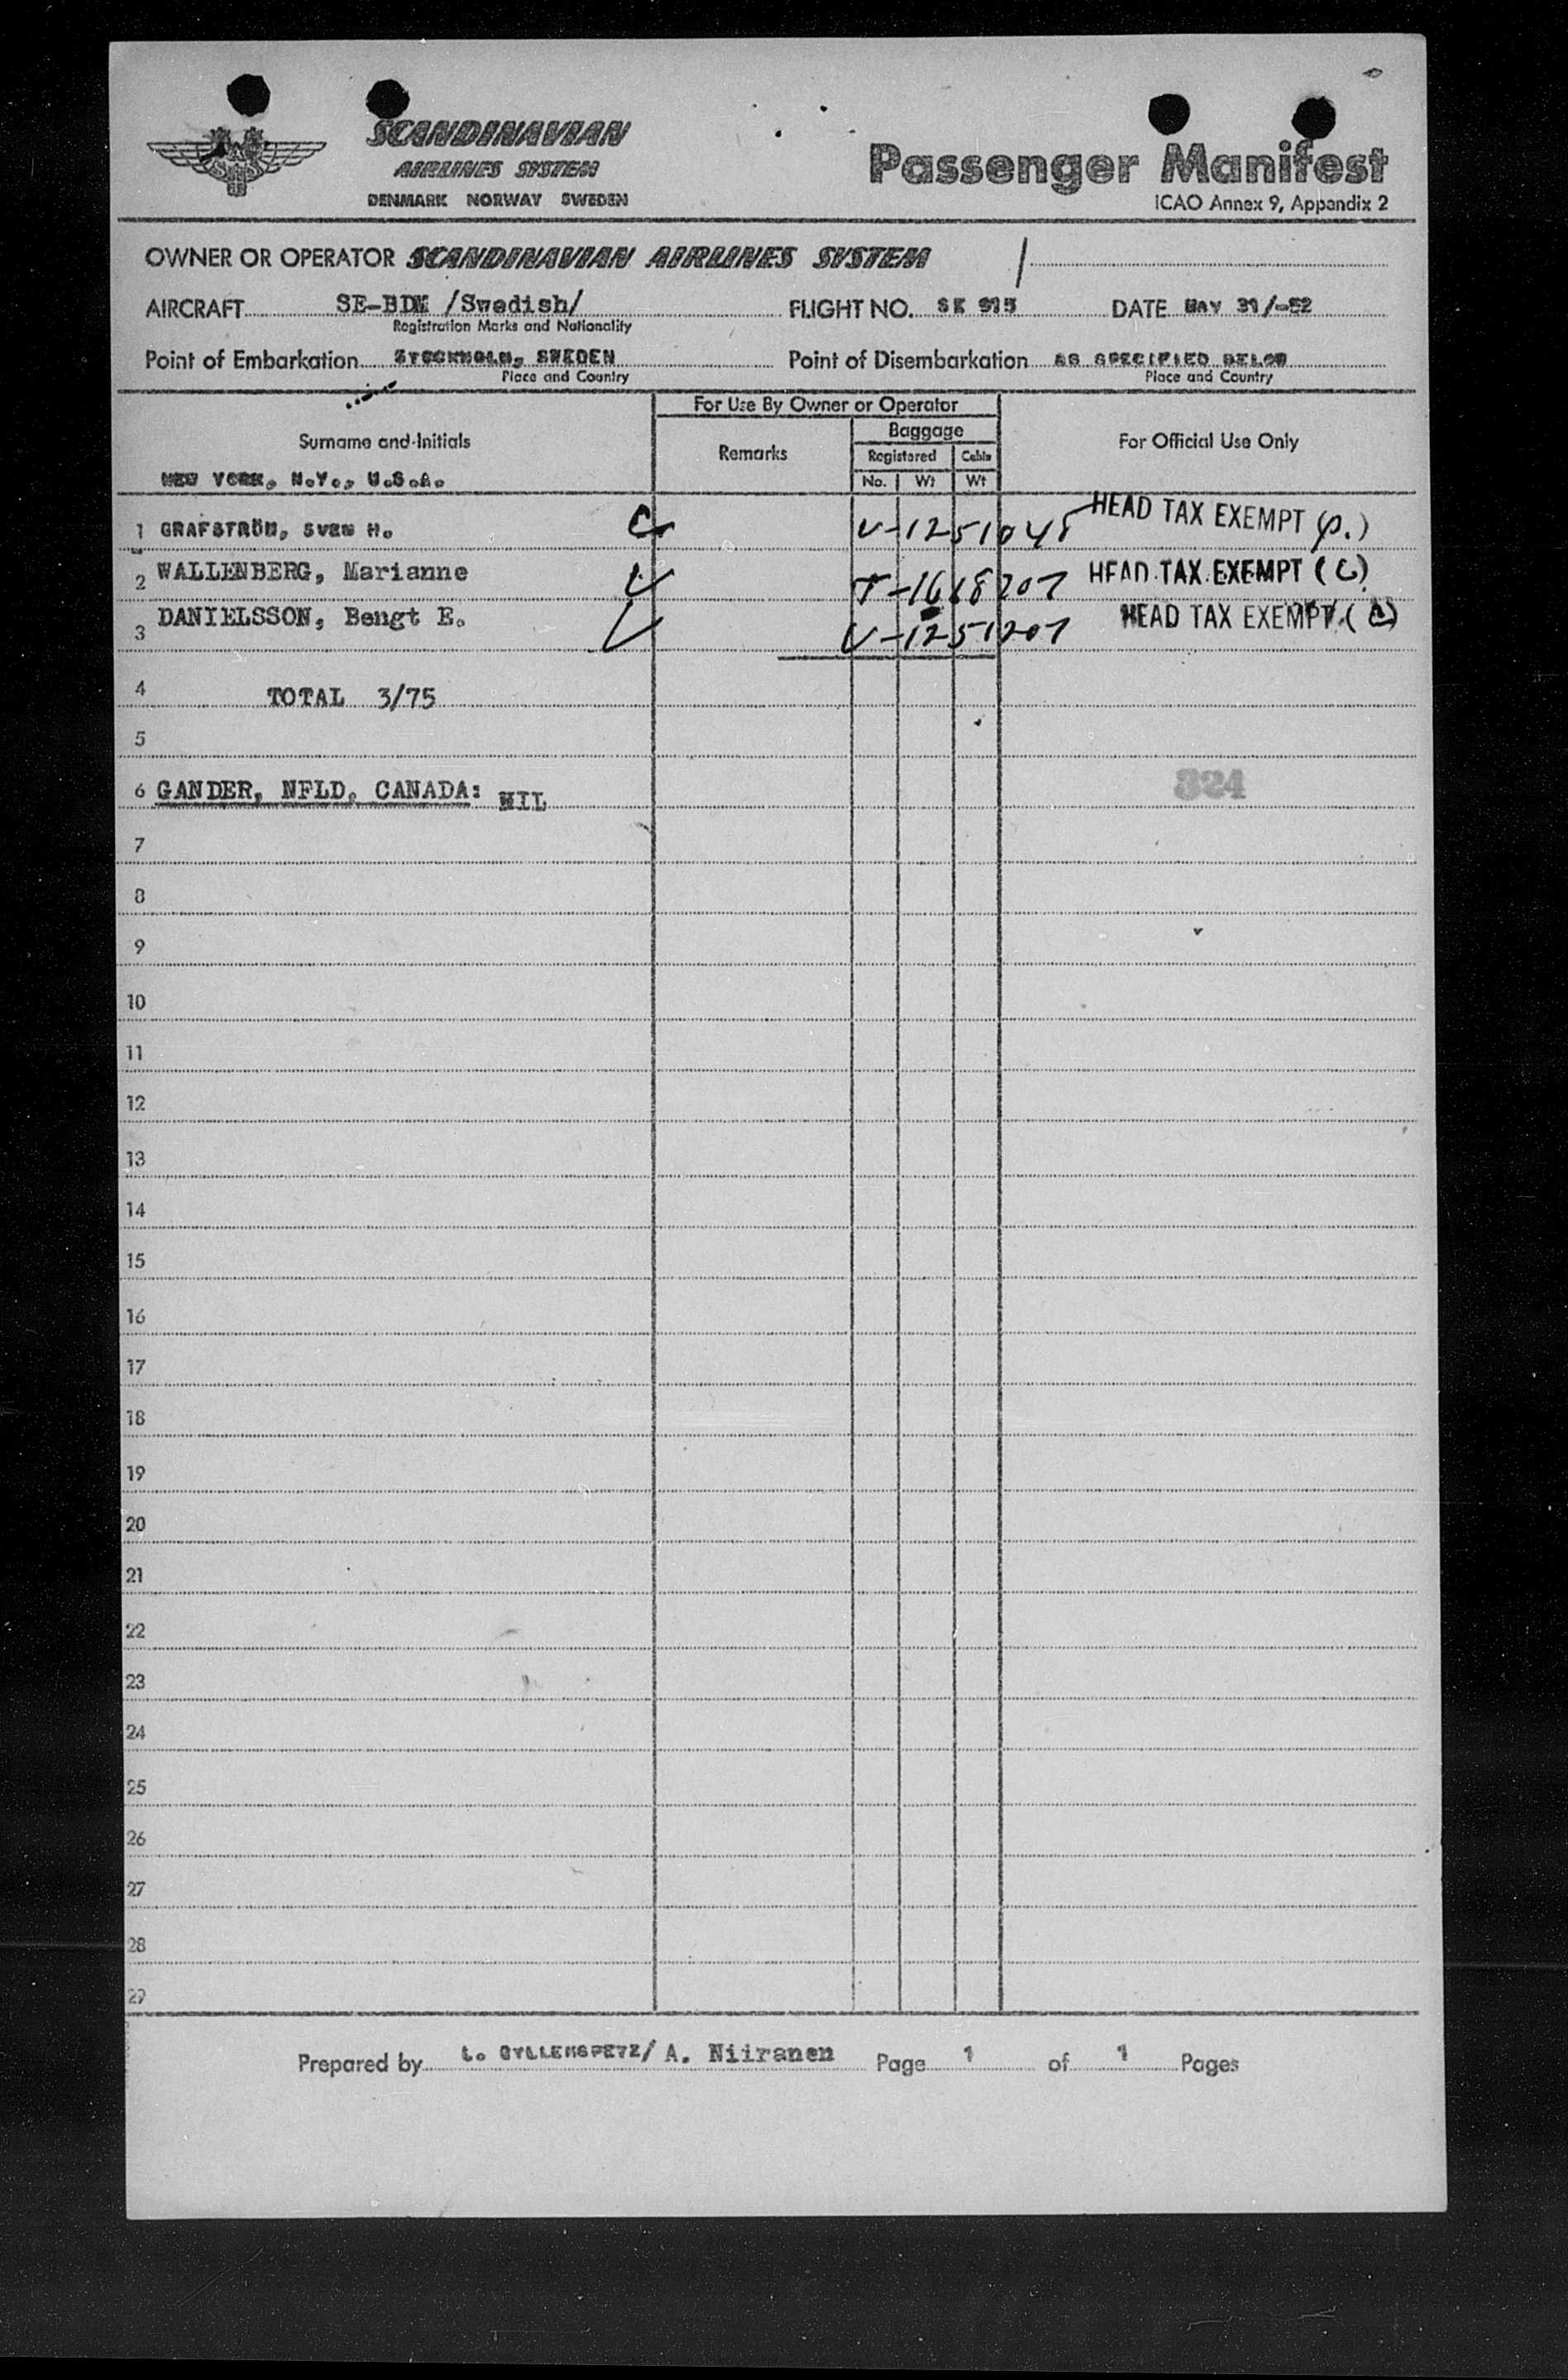 SCANDINAVIAN
AIRLINES SYSTEM
DENMARK NORWAY SWEDEN
Passenger Manifest
ICAO Annex 9, Appendix 2
OWNER OR OPERATOR SCANDINAVIAN AIRLINES SYSTEM
AIRCRAFT SE-BDM /Swedish/ FLIGHT NO. SK 915 DATE MAY 31/-52
Registration Marks and Nationality
Point of Embarkation STOCKHOLM, SWEDEN Point of Disembarkation AS SPECIFIED BELOW
Place and Country Place and Country
For Use By Owner or Operator
Surname and Initials Remarks Baggage For Official Use Only
Registered Cabin
No. Wt Wt
NEW YORK, N.Y., U.S.A.
1 GRAFSTRÖM, SVEN H. V-1251048 HEAD TAX EXEMPT (P.)
2 WALLENBERG, Marianne T-1618207 HEAD TAX EXEMPT (C)
3 DANIELSSON, Bengt E. V-1251207 HEAD TAX EXEMPT
4 TOTAL 3/75
5
6 GANDER, NFLD, CANADA: NIL 324
7
8
9
10
11
12
13
14
15
16
17
18
19
20
21
22
23
24
25
26
27
28
29
Prepared by L. GYLLENSPETZ/ A. Niiranen Page 1 of 1 Pages